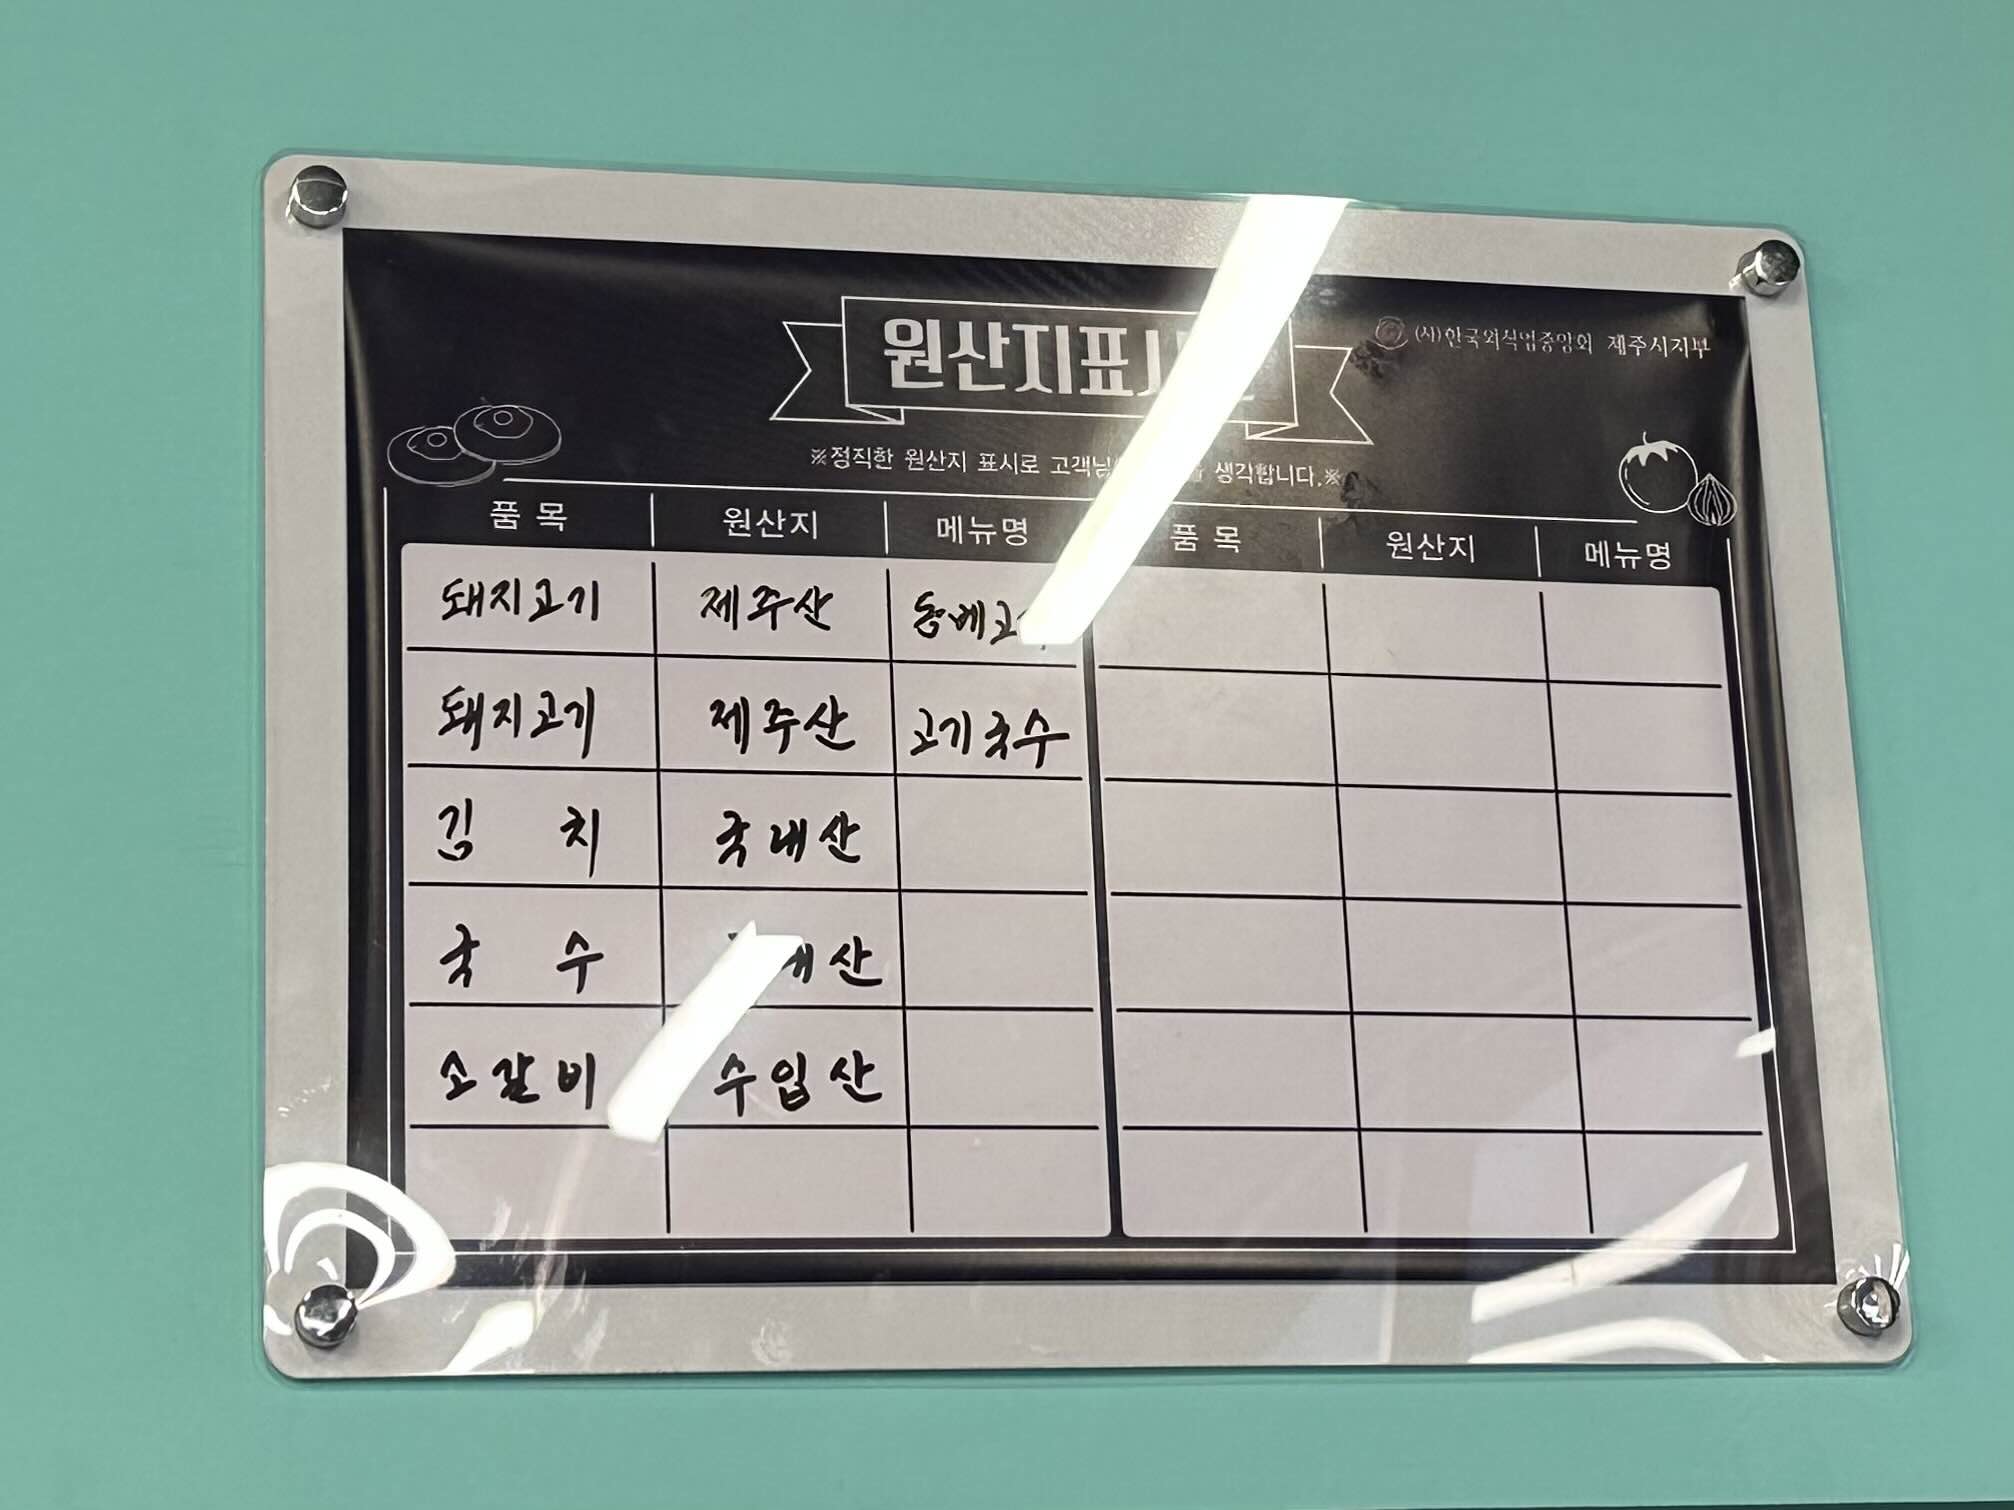 (사)한국외식업중앙회 제주시지부
※정직한 원산지 표시로 생각합니다.※
품 목 원산지 메뉴명 품 목 원산지 메뉴명
돼지고기 제주산
돼지고기 제주산 고기국수
김 치 국내산
국 수
소갈비 수입산